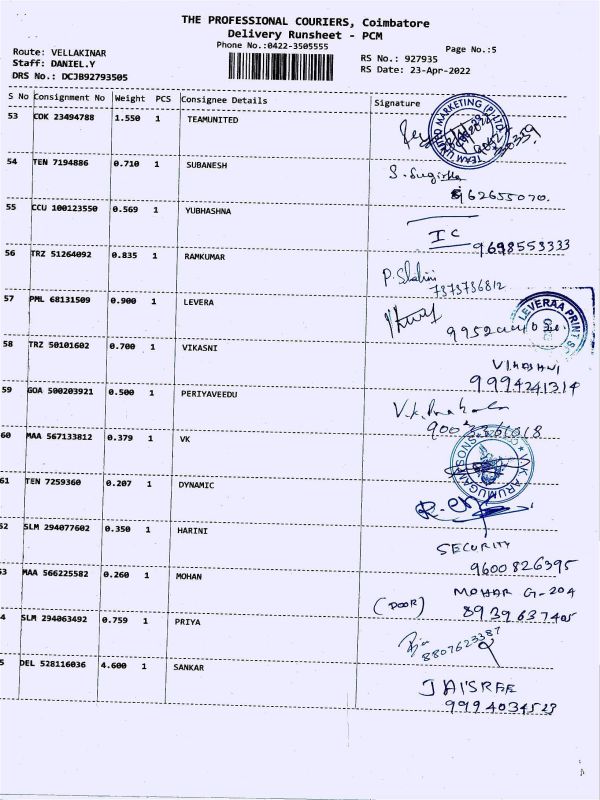 THE PROFESSIONAL COURIERS, Coimbatore
Delivery Runsheet - PCM
Phone No.:0422-3505555
Page No.:5
Route: VELLAKINAR
RS No.: 927935
Staff: DANIEL.Y
RS Date: 23-Apr-2022
DRS No.: DCJB92793505
S No Consignment No Weight PCS Consignee Details Signature
53 COK 23494788 1.550 1 TEAMUNITED
TEAM UNITRO MARKETING (P) LTD
54 TEN 7194886 0.710 1 SUBANESH
S. Sugirtha
8162655070.
55 CCU 100123550 0.569 1 YUBHASHNA
IC
9698553333
56 TRZ 51264092 0.835 1 RAMKUMAR
P. Shalini
7373736812
57 PML 68131509 0.900 1 LEVERA
LEVERAA PRINT
58 TRZ 50101602 0.700 1 VIKASNI
VIKASHNI
9994241314
59 GOA 500203921 0.500 1 PERIYAVEEDU
60 MAA 567133812 0.379 1 VK
V.K ARUMUGAM SONS
61 TEN 7259360 0.207 1 DYNAMIC
52 SLM 294077602 0.350 1 HARINI
SECURITY
9600826395
53 MAA 566225582 0.260 1 MOHAN
MOHAR G-204
(DOOR) 8939637405
4 SLM 294063492 0.759 1 PRIYA
8807623387
5 DEL 528116036 4.600 1 SANKAR
JAISREE
9994034523